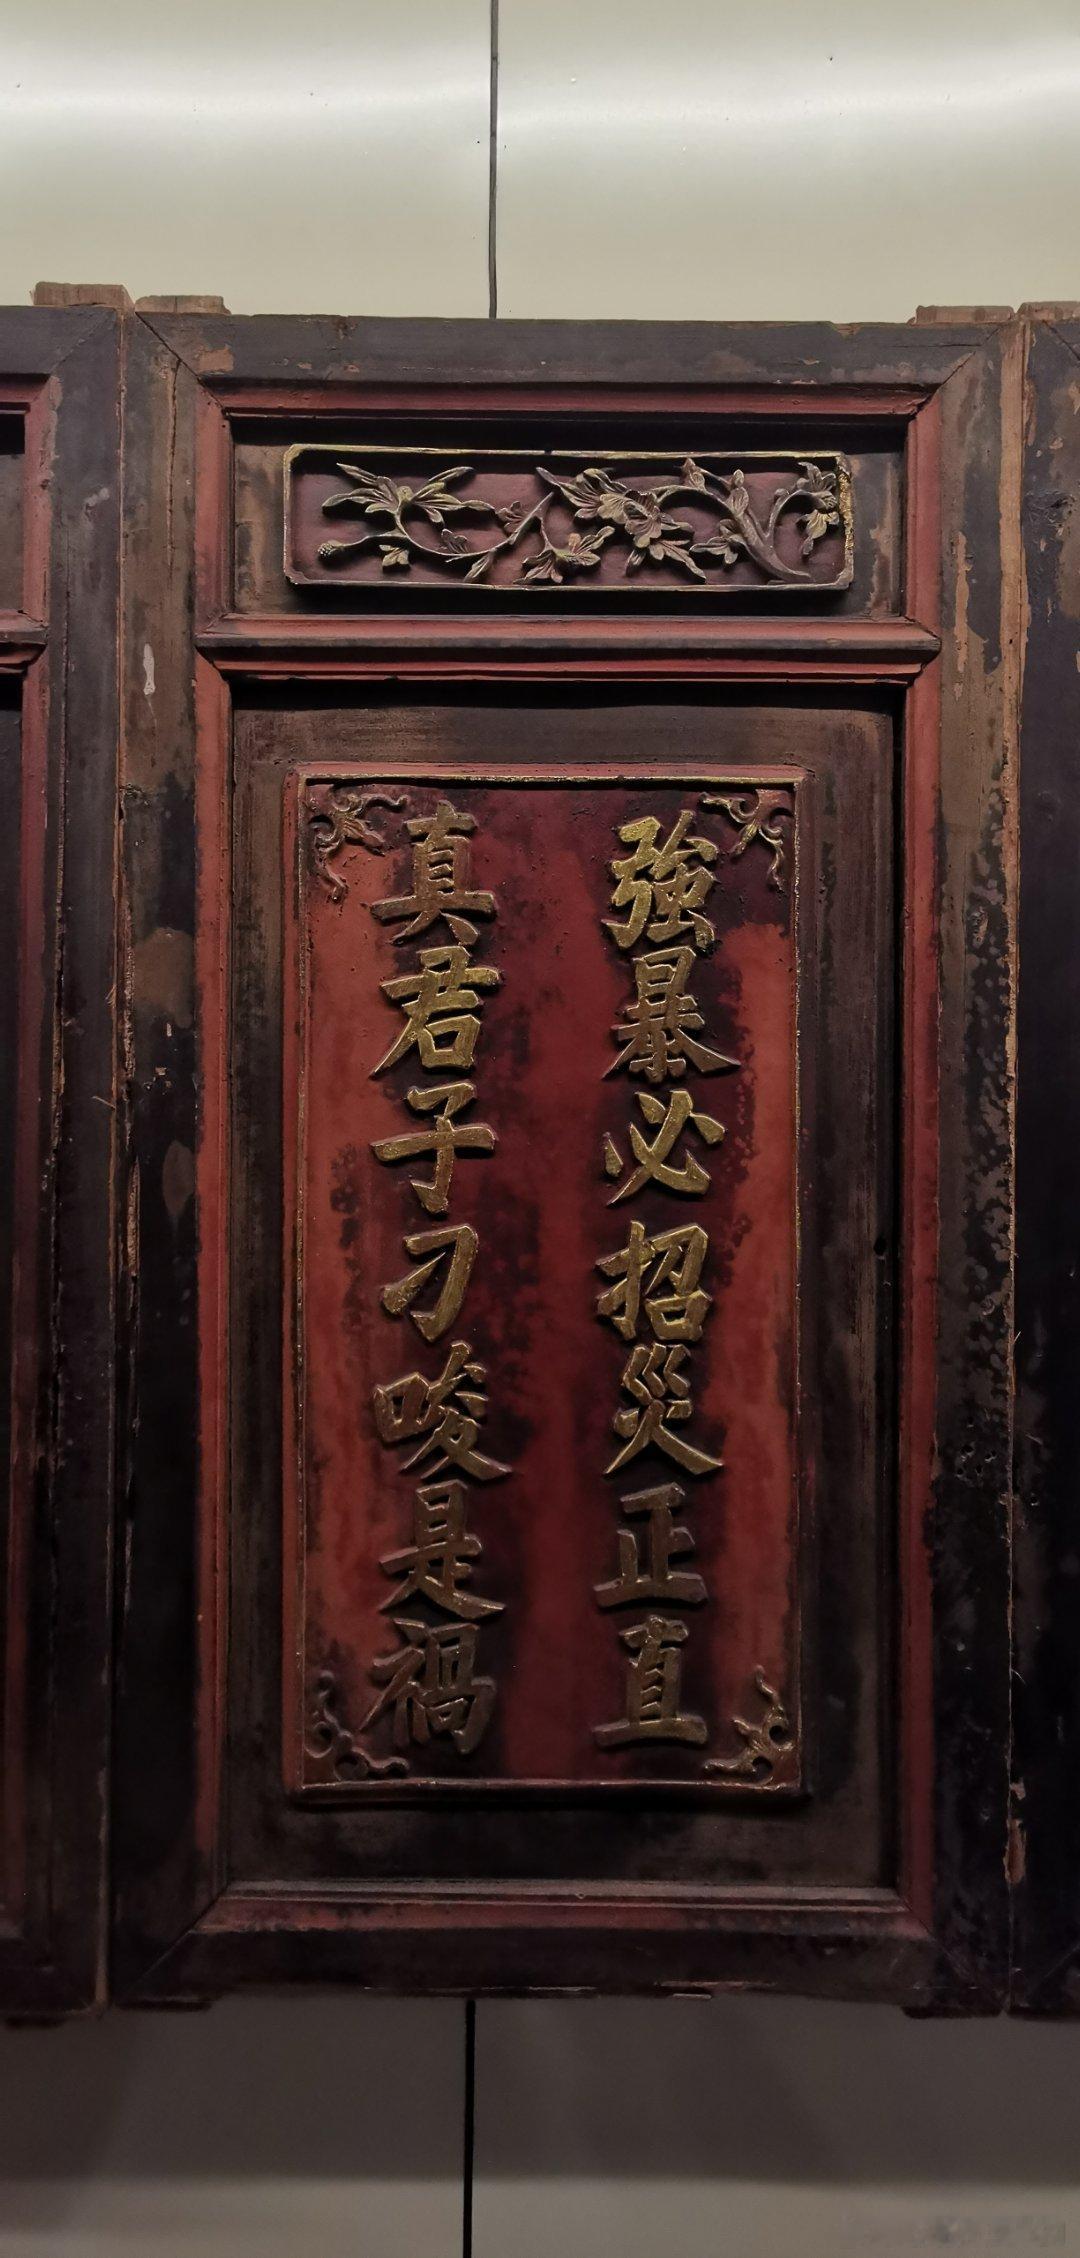 強暴必招災正直
真君子刁唆是禍